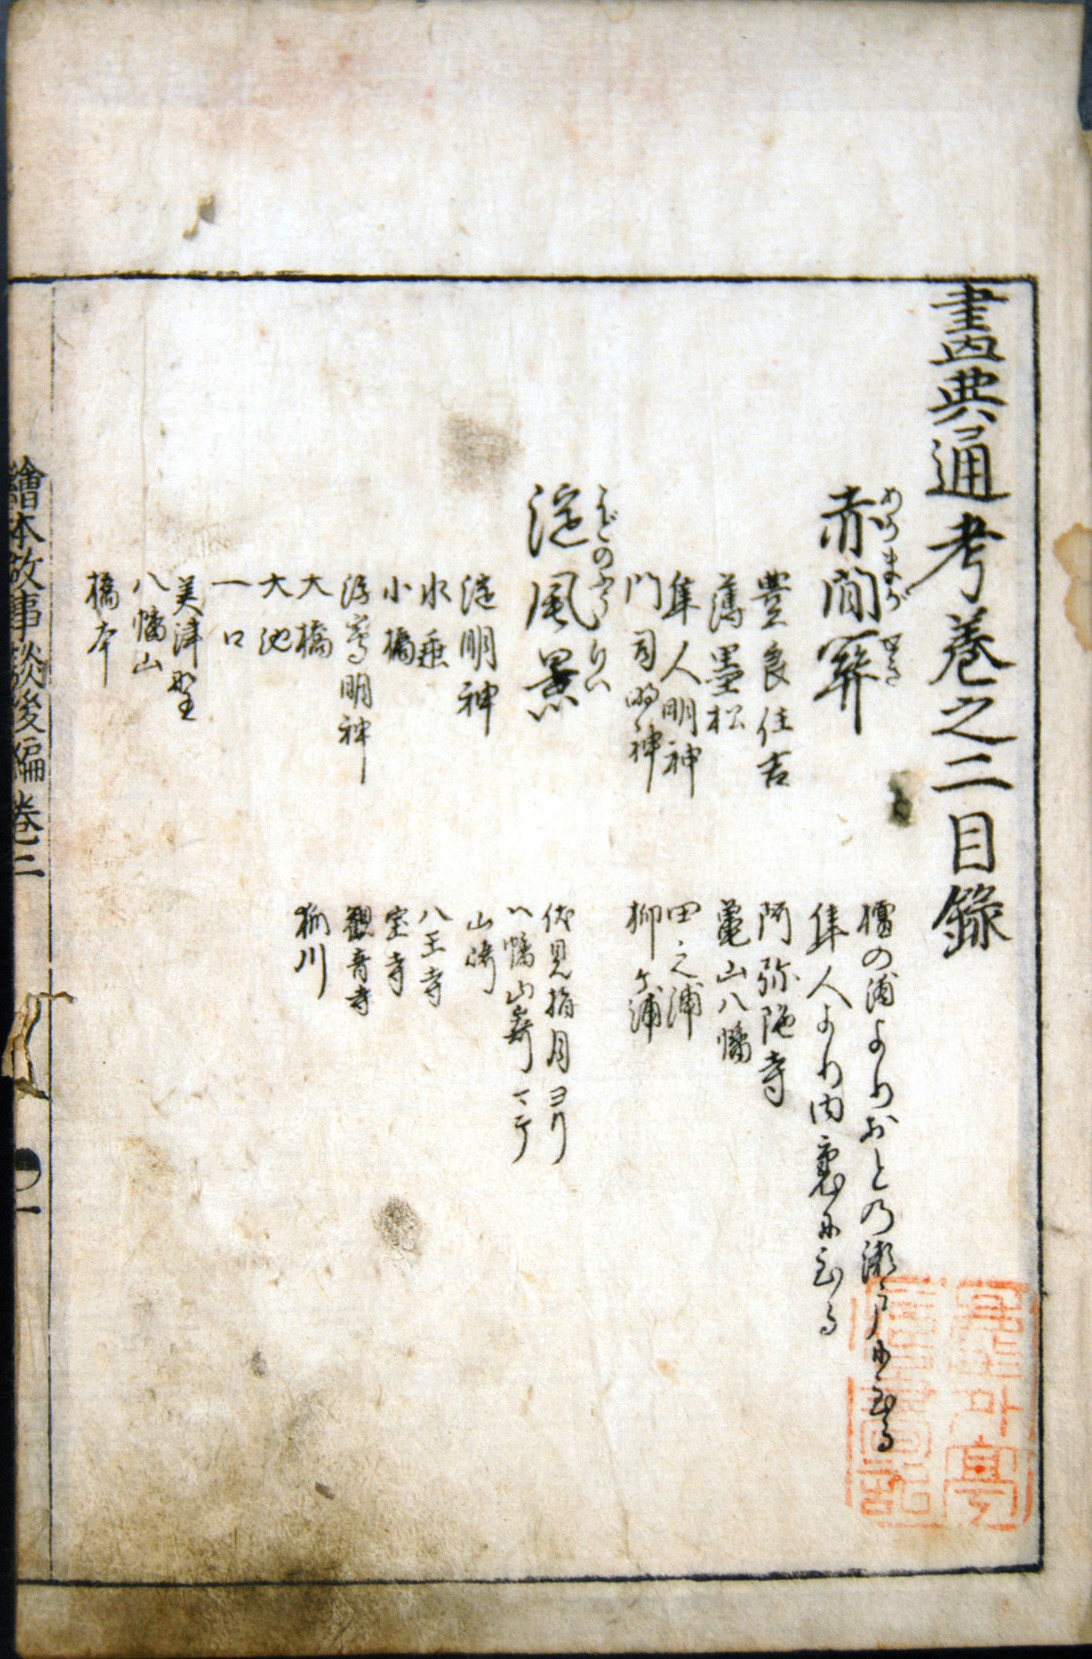 畫典通考巻之二目錄
赤間關
あかまがせき
檀の浦よりおとの瀬戸に至る
隼人より内裏に至る
豊良住吉
阿弥陀寺
薄墨松
亀山八幡
隼人明神
田之浦
門司明神
柳ヶ浦
淀風景
よどのふうけい
伏見指月ヨリ
八幡山崎マテ
淀明神
山崎
水垂
八王寺
小橋
宝寺
浮島明神
觀音寺
大橋
狐川
大池
一口
美津野
八幡山
橋本
繪本故事談後編巻二